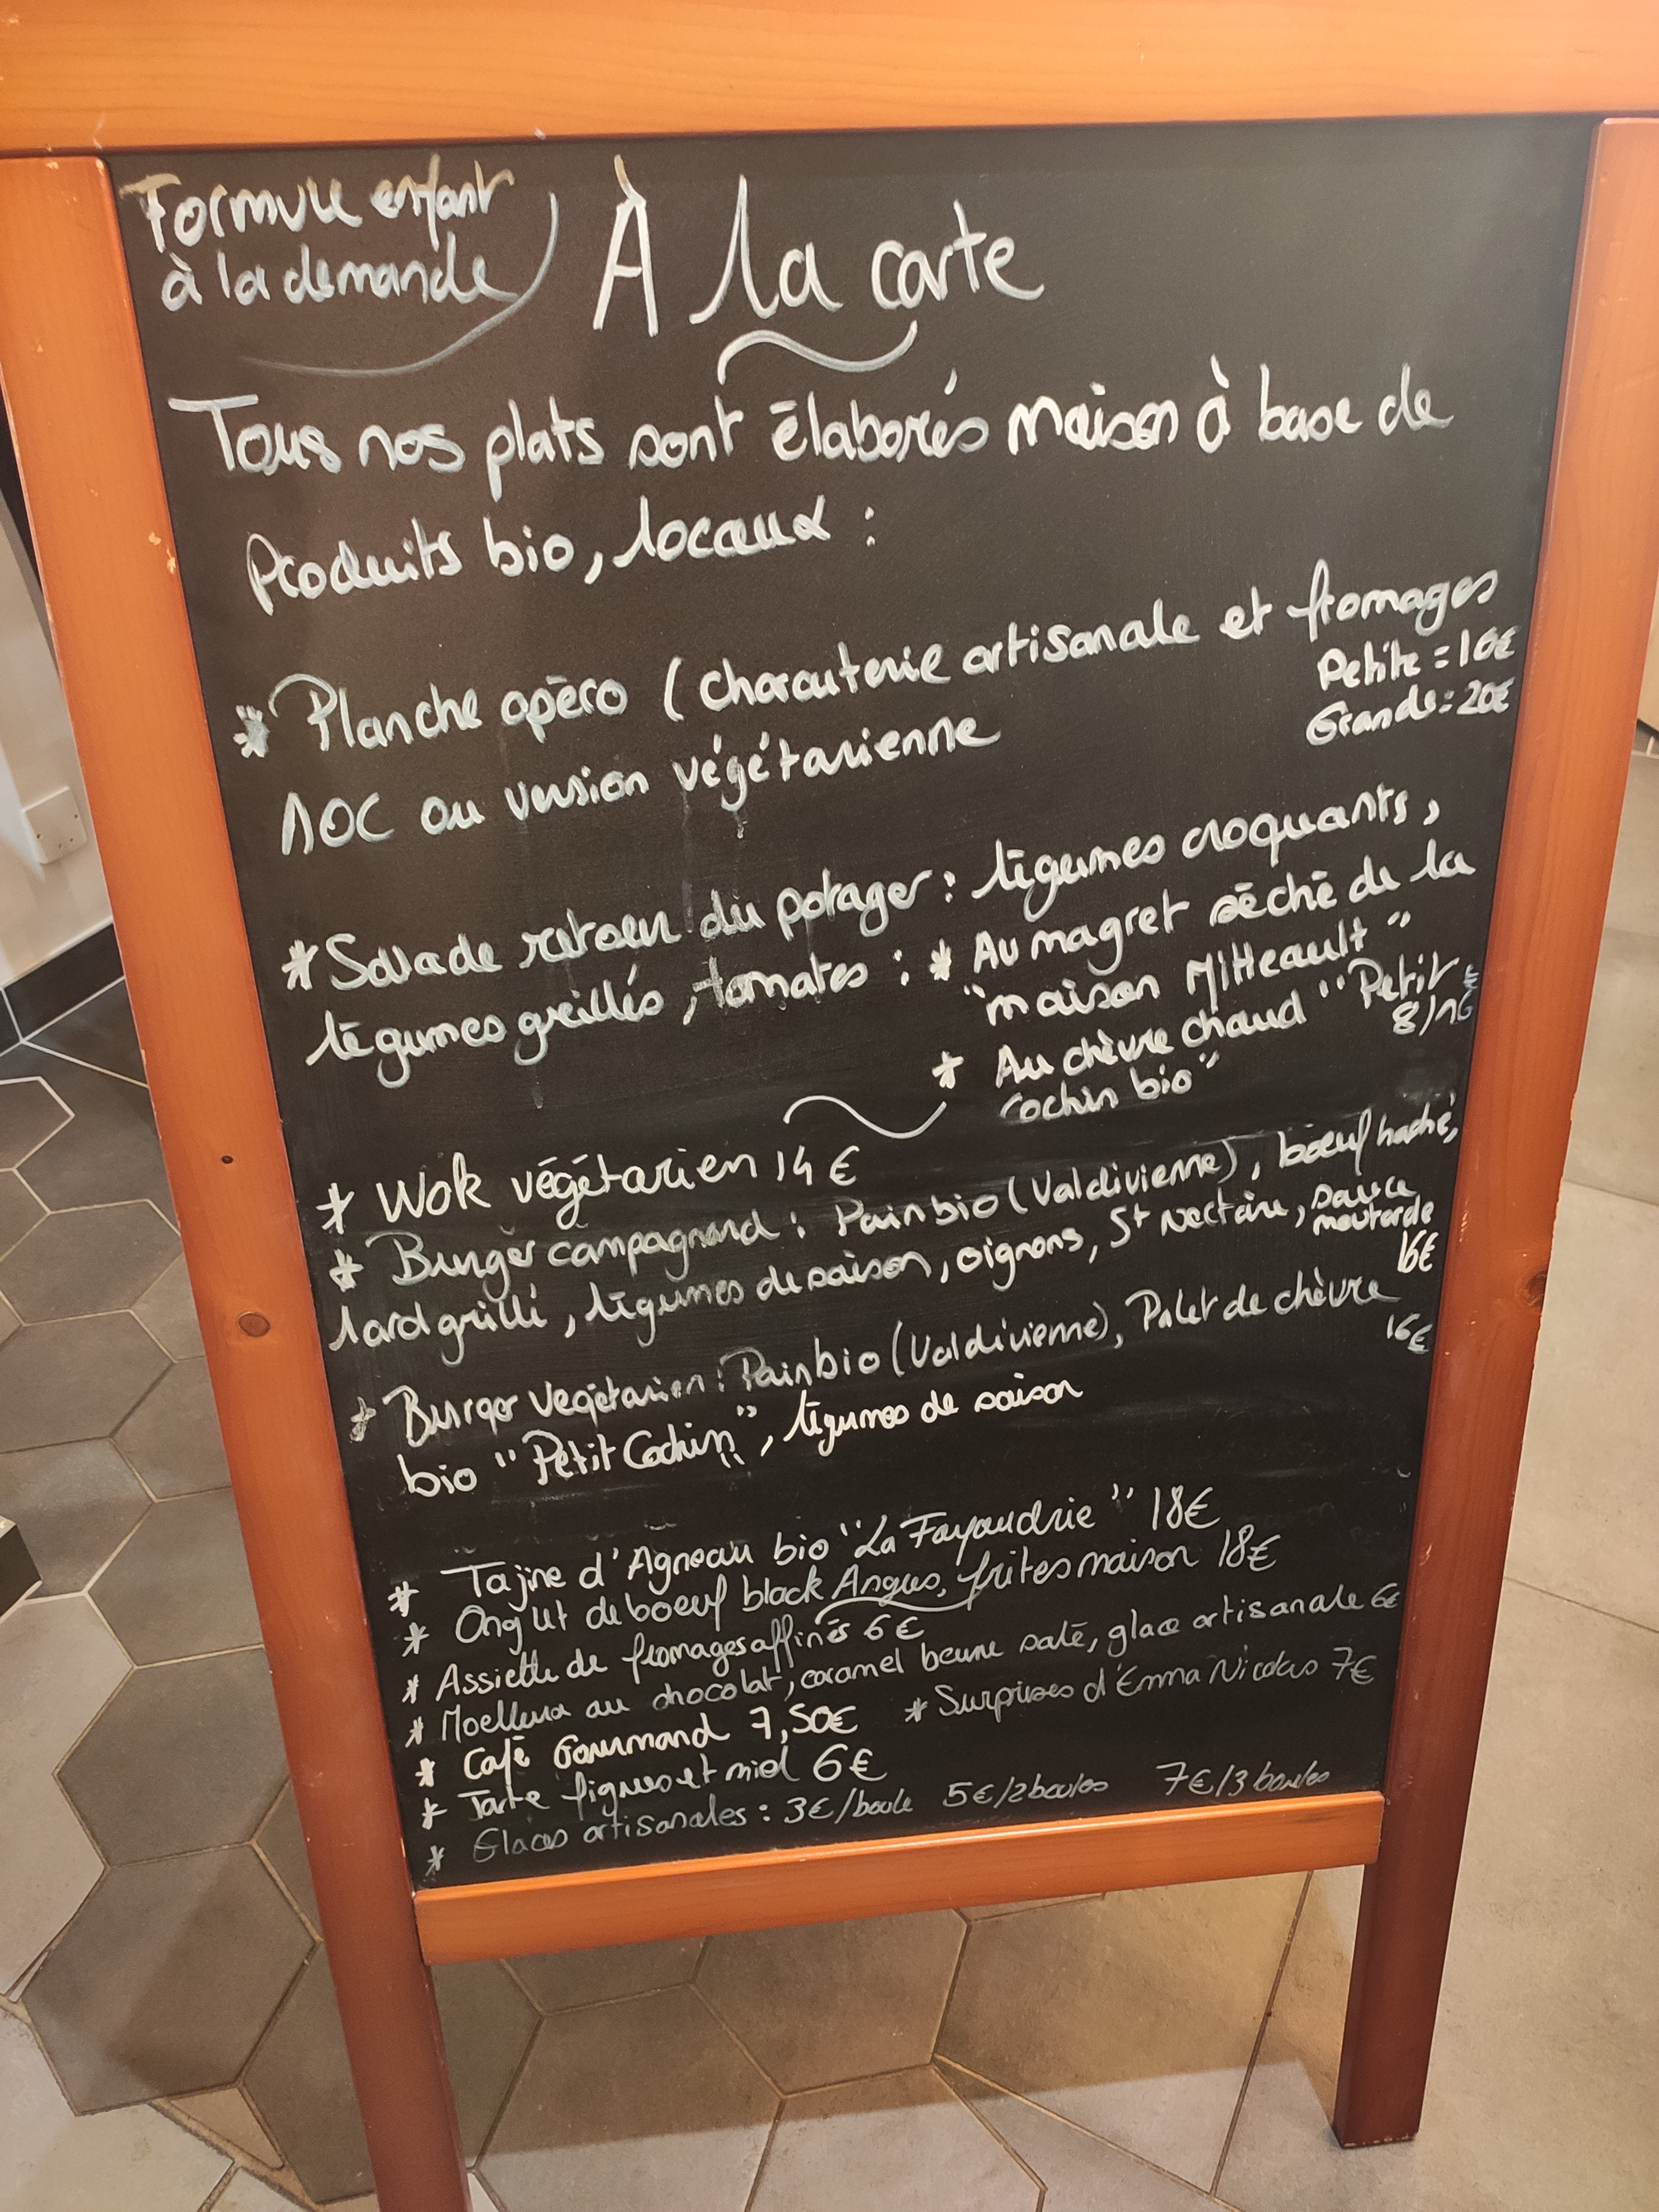 Formule enfant
à la demande
À la carte
Tous nos plats sont élaborés maison à base de
Produits bio, locaux :
* Planche apéro (charcuterie artisanale et fromages
Petite = 10€
Grande = 20€
AOC ou version végétarienne
* Salade retour du potager : légumes croquants,
légumes grillés, tomates : * Au magret séché de la
"maison Mitteault"
* Au chèvre chaud "Petit
cochin bio"
* Wok végétarien 14€
* Burger campagnard : Pain bio (Valdivienne), boeuf haché,
lard grillé, légumes de saison, oignons, St Nectaire, sauce
moutarde
16€
* Burger végétarien : Pain bio (Valdivienne), Palet de chèvre
16€
bio "Petit Cochin", légumes de saison
* Tajine d'Agneau bio "La Fayaudrie" 18€
* Onglet de boeuf black Angus, frites maison 18€
* Assiette de fromages affinés 6€
* Moelleux au chocolat, caramel beurre salé, glace artisanale 6€
* Café Gourmand 7,50€ * Surprises d'Emma Nicolas 7€
* Tarte figues et miel 6€
* Glaces artisanales : 3€/boule 5€/2boules 7€/3boules